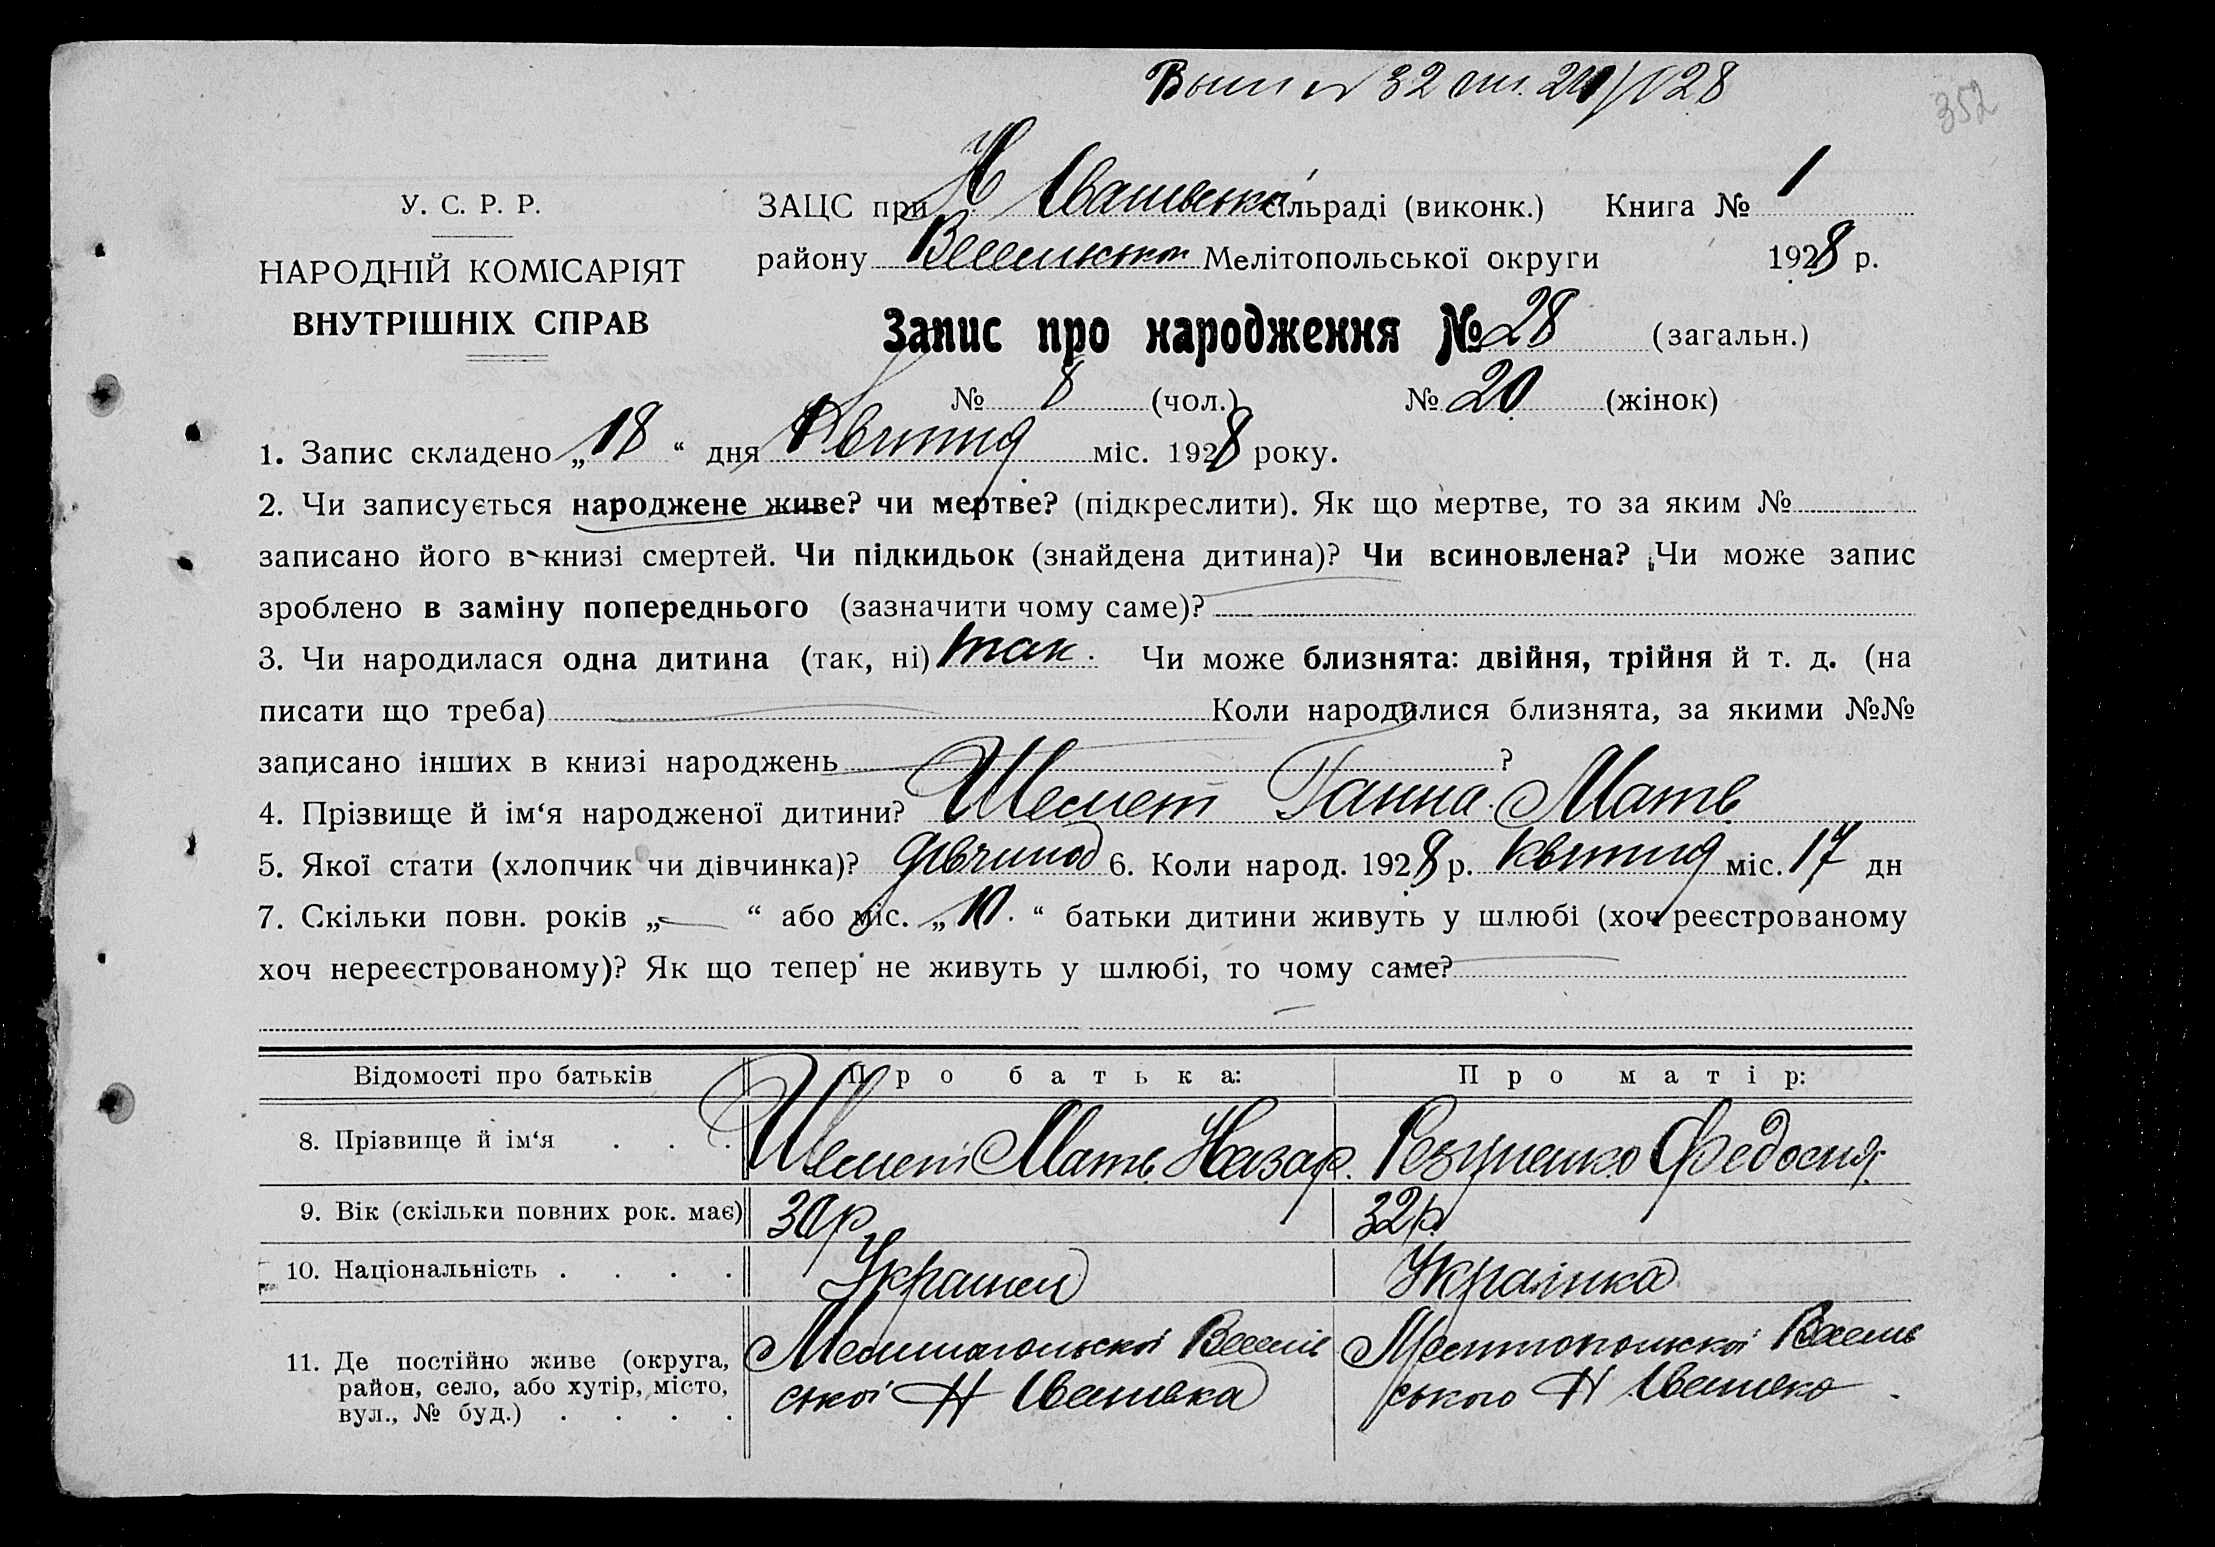 352
У. С. Р. Р.
НАРОДНІЙ КОМІСАРІЯТ
ВНУТРІШНІХ СПРАВ
ЗАЦС при Н Івашівській сільраді (виконк.) Книга № 1
району Мелітопольської округи 1928 р.
Запис про народження № 28 (загальн.)
№ 8 (чол.) № 20 (жінок)
1. Запис складено „18“ дня Квітня міс. 1928 року.
2. Чи записується народжене живе? чи мертве? (підкреслити). Як що мертве, то за яким №
записано його в книзі смертей. Чи підкидьок (знайдена дитина)? Чи всиновлена? Чи може запис
зроблено в заміну попереднього (зазначити чому саме)?
3. Чи народилася одна дитина (так, ні) так. Чи може близнята: двійня, трійня й т. д. (на
писати що треба) Коли народилися близнята, за якими №№
записано інших в книзі народжень ?
4. Прізвище й ім‘я народженої дитини? Шемет Ганна Матв.
5. Якої стати (хлопчик чи дівчинка)? 6. Коли народ. 1928 р. квітня міс. 17 дн
7. Скільки повн. років „— “ або міс. „10.“ батьки дитини живуть у шлюбі (хоч реєстрованому
хоч нереєстрованому)? Як що тепер не живуть у шлюбі, то чому саме?
Відомості про батьків Про батька: Про матір:
8. Прізвище й ім‘я . . . Шемет Матв. Назар. Федосия.
9. Вік (скільки повних рок. має) 30р. 32р.
10. Національність . . . . Українка
11. Де постійно живе (округа,
район, село, або хутір, місто,
вул., № буд.) . . . .
Мелітопольскої
ської Н
Мелітопольскої
ського Н